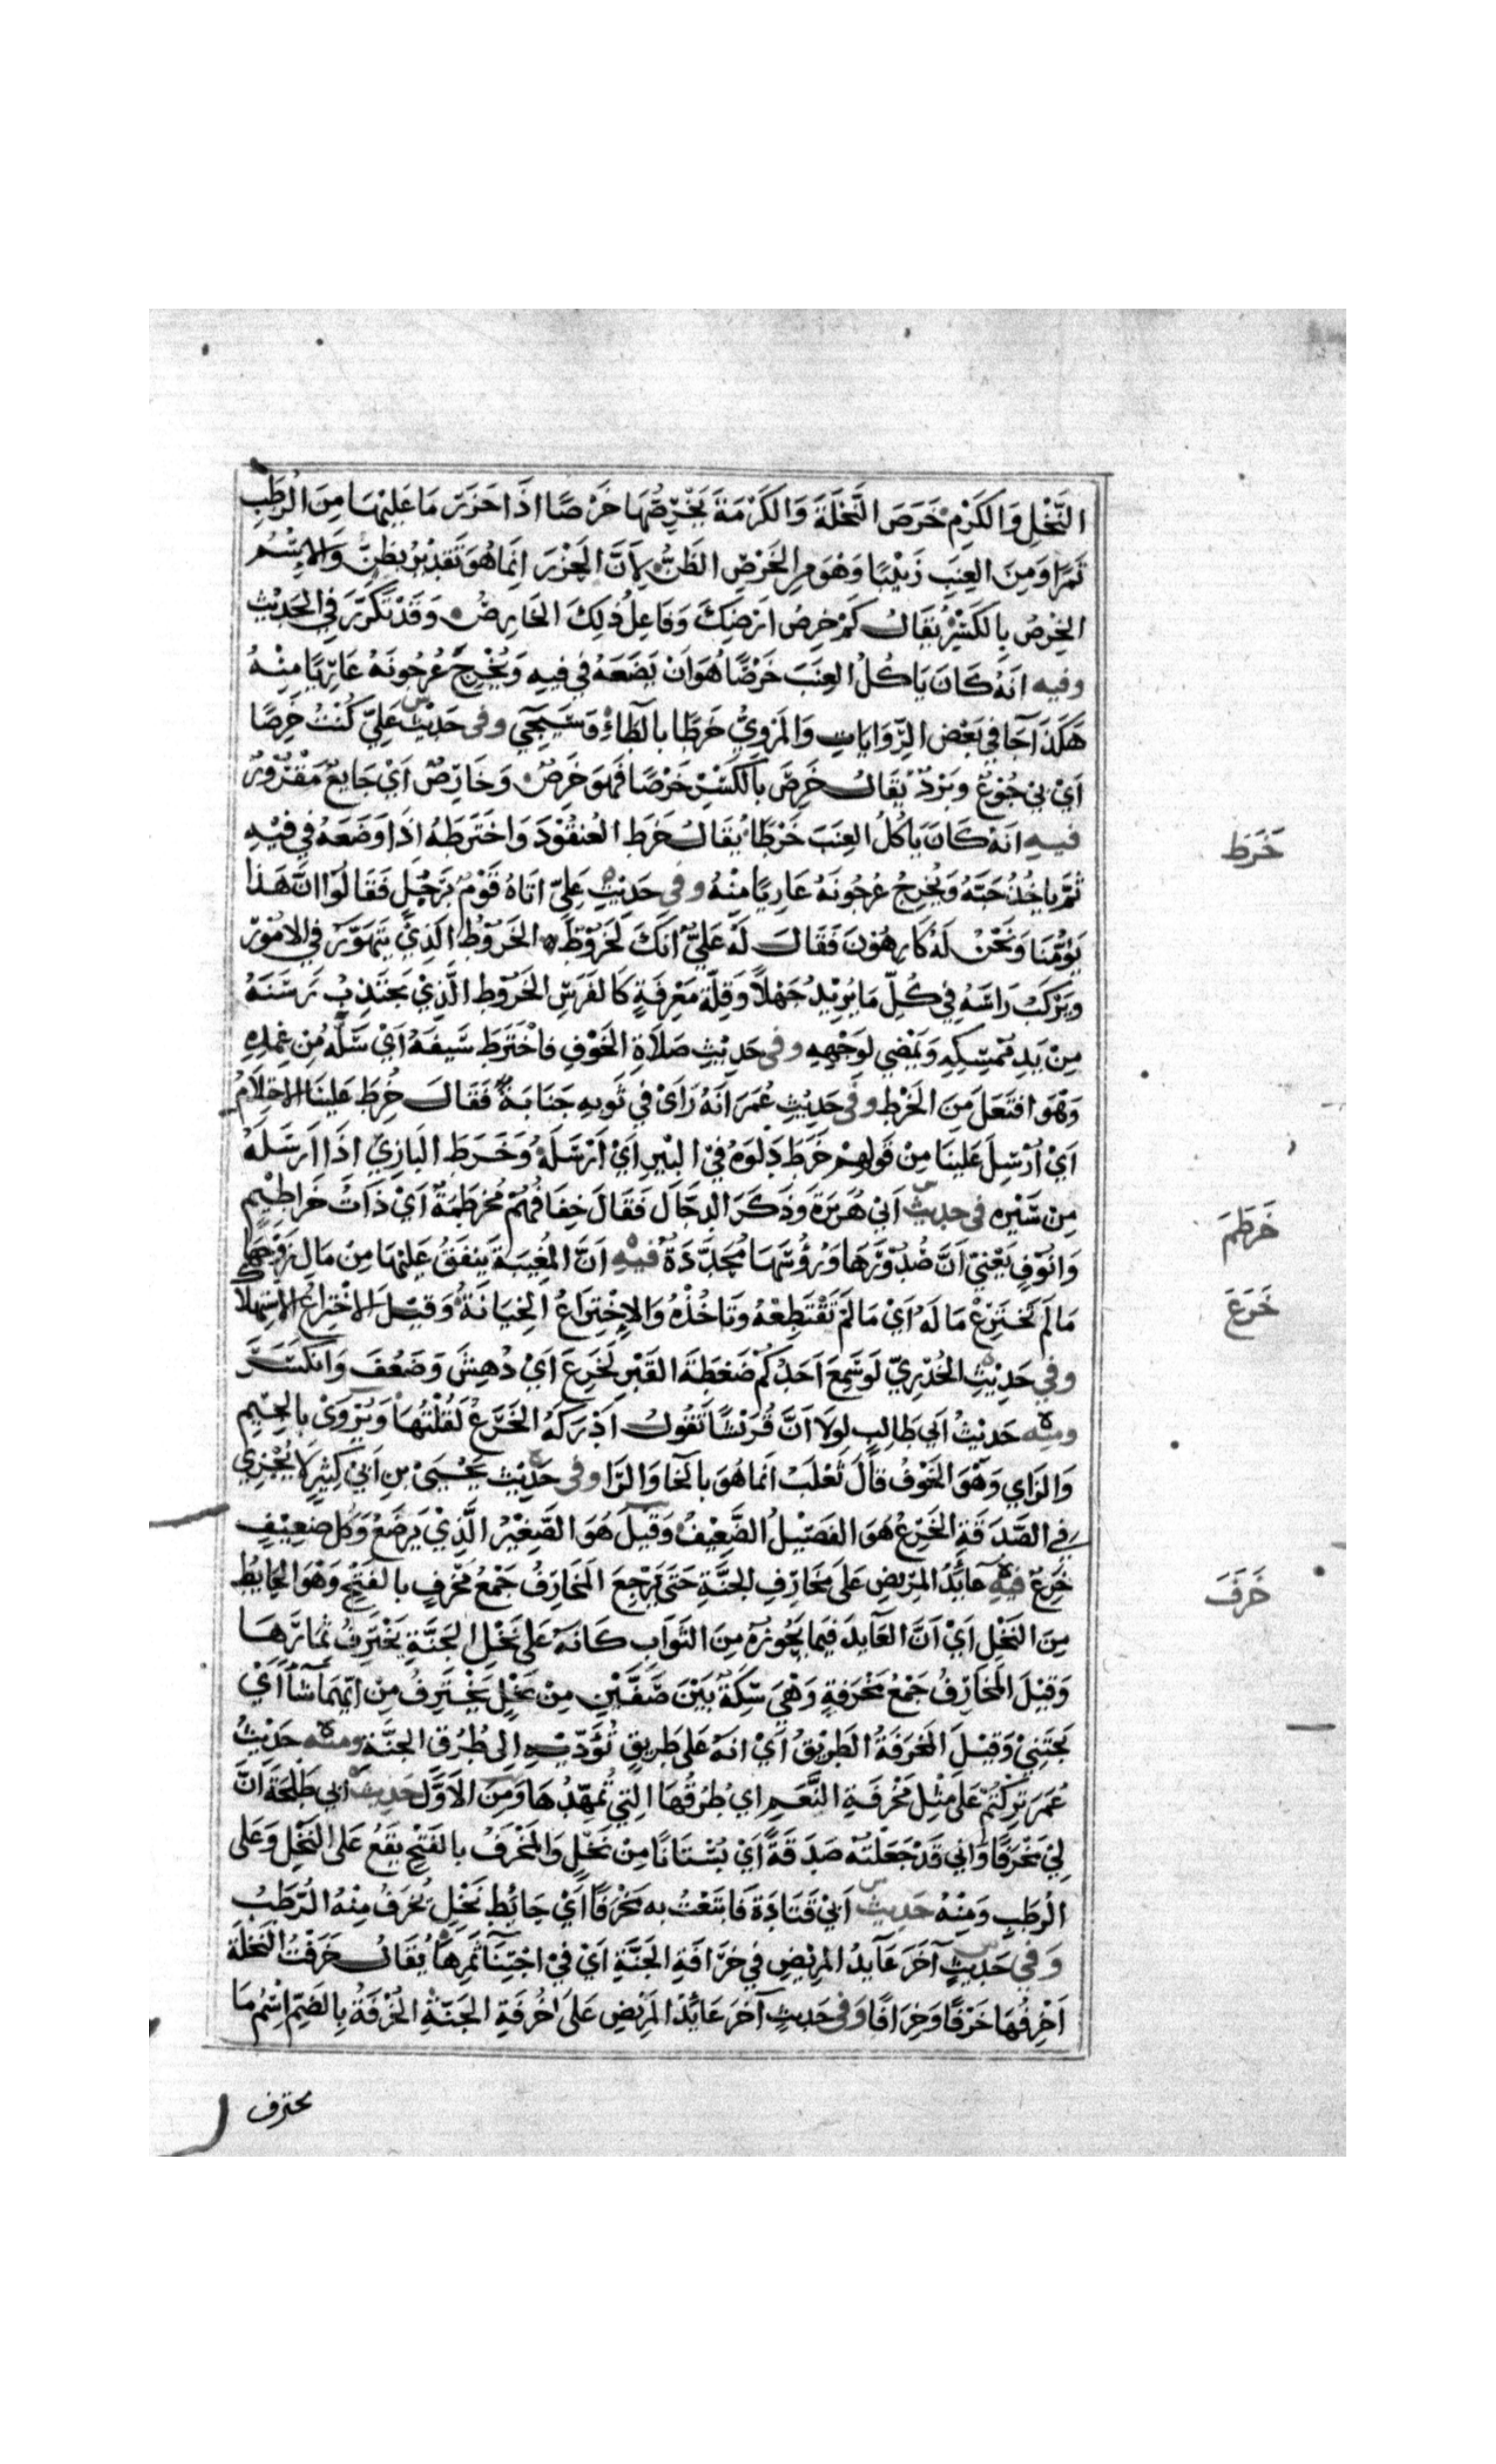 النَّخْلِ وَالكَرْمِ خَرَصَ النَّخْلَةَ وَالكَرْمَةَ يَخْرِصُهَا خَرْصًا اذَا حَزَرَ مَا عَلَيْهَا مِنَ الرُطَبِ
تَمْرًا وَمِنَ العِنَبِ زَبِيْبًا وَهُوَ مِنَ الخَرْصِ الظَنُّ لِأَنَّ الحَزْرَ اِنَمَا هُوَ تَقْدِيْرٌ بِظَنٍّ وَالاِسْمُ
الخِرْصُ بِالكَسْرِ يُقَالُ كَمْ خِرْصُ اَرْضِكَ وَفَاعِلُ ذٰلِكَ الخَارِصُ وَقَدْ تَكَرَّرَ فِي الحَدِيْثِ
وفيه انَهُ كَانَ يَاكُلُ العِنَبَ خَرْصًا هُوَ اَنْ يَضَعَهُ فِي فِيهِ وَيُخْرِجَ عُرْجُونَهُ عَارِيًا مِنْهُ
هٰكَذَا جَآ فِي بَعْضِ الرِّوَايَاتِ وَالمَرْوِيُّ خَرْطًا بِالطَّاءِ وَسَيَجِيُ وفى حَدِيْثِ عَلِيّ كُنْتُ خَرِصًا
اَيْ بِيْ جُوْعٌ وَبَرْدٌ يُقَالُ خَرِصَ بِالكَسْرِ خَرَصًا فَهُوَ خَرِصٌ وَخَارِصٌ اَيْ جَايِعٌ مَقْرُوْرٌ
فيهِ انَهُ كَانَ يَاكُلُ العِنَبَ خَرْطًا يُقَالُ خَرَطَ العُنْقُوْدَ وَاخْتَرَطَهُ اِذَا وَضَعَهُ فِي فِيْهِ
خَرَط
ثُمَّ يَاخُذُ حَبَّهُ وَيُخْرِجُ عُرْجُونَهُ عَارِيًا مِنْهُ وفي حَدِيْثِ عَلِيّ اتَاهُ قَوْمٌ بِرَجُلٍ فَقَالُوْا انَّ هٰذَا
يَؤُمُّنَا وَنَحْنُ لَهُ كَارِهُوْنَ فَقَالَ لَهُ عَلِيٌّ انَكَ لَخَرُوْطٌ الخَرُوْطُ الَذِيْ يَتَهَوَّرُ فِي الامُوْرِ
وَيَرْكَبُ رَاسَهُ فِي كُلِّ مَا يُرِيْدُ جَهْلًا وَقِلَّةَ مَعْرِفَةٍ كَالفَرَسِ الخَرُوْطِ الَّذِيْ يَجْتَذِبُ رَسَنَهُ
مِنْ يَدِ مُمْسِكِهِ وَيَمْضِي لِوَجْهِهِ وفى حَدِيْثِ صَلَاةِ الخَوْفِ فَاخْتَرَطَ سَيفَهُ اَيْ سَلَّهُ مِنْ غِمْدِهِ
وَهُوَ افتَعَلَ مِنَ الخَرْطِ وفى حَدِيْثِ عُمَرَ انَهُ رَاَى فِي ثَوبِهِ جَنَابَةً فَقَالَ خُرِطَ عَلَيْنَا الاحْتِلَامُ
اَيْ اُرْسِلَ عَلَيْنَا مِنْ قَولِهِمْ خَرَطَ دَلْوَهُ فِيْ البِيرِ اَيْ اَرْسَلَهُ وَخَرَطَ البَازِيَ اذَا ارْسَلَهُ
مِنْ سَيْرِهِ فى حديث اَبِي هُرَيرَةَ وَذَكَرَ الدجَّالَ فَقَالَ خِفَافُهُمْ مُخَرْطَمَةٌ اَيْ ذَاتُ خَراطِيْمِ
خَرْطَمَ
وَانُوفٍ يَعْنِي اَنَّ صُدُوْرَهَا وَرُؤُسَهَا مُحَدَّدَةٌ فيهِ انَّ المُغِيْبَةَ يُنْفَقُ عَلَيْهَا مِنْ مَالِ زَوْجِهَا
مَا لَمْ تَخْتَرِعْ مَا لَهُ اَيْ مَا لَمْ تَقْتَطِعْهُ وَتَاخُذْهُ وَالاِخْتِرَاعُ الخِيَانَةُ وَقِيْلَ الاخْتِرَاعُ الاسْتِهلَاكُ
خَرَعَ
وفي حَدِيْثِ الخُدْرِيّ لَوسَمِعَ اَحَدُكُمْ ضَغْطَةَ القَبْرِ لَخَرِعَ اَيْ دُهِشَ وَضَعُفَ وَانكَسَرَ
ومنه حَدِيْثُ اَبِي طَالِبٍ لَولَا اَنَّ قُرَيْشًا تَقُولُ اَدْرَكَهُ الخَرَعُ لَقُلْتُهَا وَيُرْوَىٰ بِالجِيْمِ
وَالزَاي وَهُوَ الخَوْفُ قَالَ ثَعْلَبْ انَمَا هُوَ بِالخَا وَالرَا وفى حَدِيْثِ يَحْيَىٰ بنِ اَبِيْ كَثِيْرٍ لَا يُجْزِي
فِي الصَّدَقَةِ الخَرِعُ هُوَ الفَصِيْلُ الضَّعِيْفُ وَقِيْلَ هُوَ الصَّغِيْرُ الَّذِيْ يَرضَعُ وَكُلُ ضَعِيْفٍ
خَرِعٌ فيهِ عَايِدُ المَرِيضِ عَلَى مَخَارِفِ الجَنَّةِ حَتَى يَرْجِعَ المَخَارِفُ جَمْعُ مَخْرَفٍ بِالفَتْحِ وَهُوَ الحَايِطُ
خَرَفَ
مِنَ النَخْلِ اَيْ اَنَّ العَايِدَ فِيمَا يَحُوزُهُ مِنَ الثَوَابِ كَانَهُ عَلَى نَخْلِ الجَنَّةِ يَخْتَرِفُ ثِمَارَهَا
وَقِيْلَ المَخَارِفُ جَمْعُ مَخْرَفَةٍ وَهْيَ سِكَّةٌ بَيْنَ صَفَّيْنِ مِنْ نَخْلٍ يَخْتَرِفُ مِنْ ايّهِمَا شَآءَ اَيْ
يَجْتَنِيْ وَقِيْلَ المَخْرَفَةُ الطَرِيْقُ اَيْ انَهُ عَلَى طَرِيقٍ تُؤَدّيْهِ اِلى طُرُقِ الجَنَّةِ ومنه حَدِيْثُ
عُمَرَ تَرَكْتُكُمْ عَلَى مِثْلِ مَخْرَفَةِ النَّعَمِ اي طُرُقُهَا الِتِي تُمَهّدُهَا وَمِنَ الاَوَّلِ حديث ابي طَلْحَةَ انَّ
لِيْ مَخْرَفًا وَانِي قَدْ جَعَلْتُهُ صَدَقَةً اَيْ بُسْتَانًا مِنْ نَخْلٍ وَالمَخْرَفُ بِالفَتْحِ يَقَعُ عَلَى النَخْلِ وَعَلَى
الرُطَبِ وَمِنْهُ حَدِيثُ اَبِيْ قَتَادَةَ فَابْتَعْتُ بِهِ مَخْرَفًا اَيْ حَايِطَ نَخْلٍ يُخْرَفُ مِنْهُ الرُطَبُ
وَفِي حَدِيْثٍ آخَرَ عَآيِدُ المَرِيْضِ فِي خِرَافَةِ الجَنَّةِ اَيْ فِيْ اجْتِنَآ ثَمَرِهَا يُقَالُ خَرَفْتُ النَخْلَةَ
اَخْرِفُهَا خَرْفًا وَخِرَافًا وَفى حَدِيثٍ آخَرَ عَايِدُ المَرِيْضِ عَلَى خُرْفَةِ الجَنّةِ الخُرْفَةُ بِالضَمِّ اِسْمُ مَا
يخترف